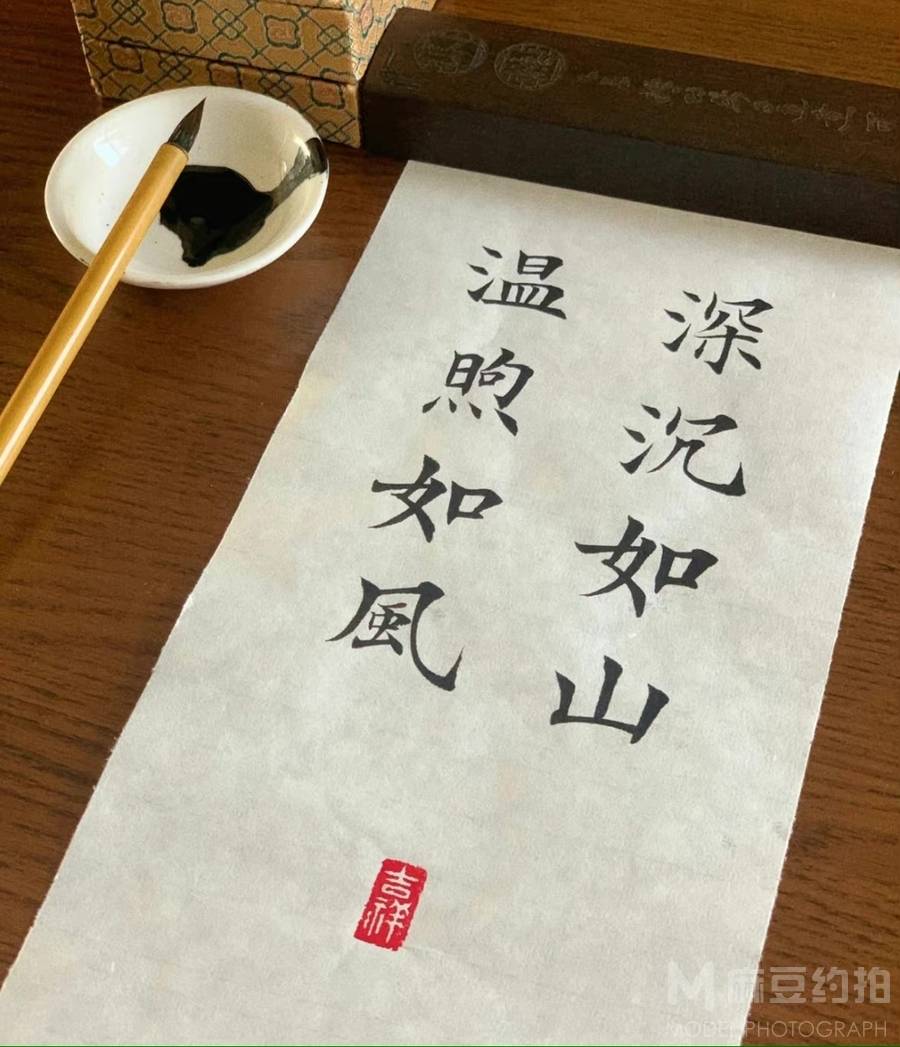 深沉如山
温煦如風
吉祥
M 麻豆约拍
MODEL PHOTOGRAPH